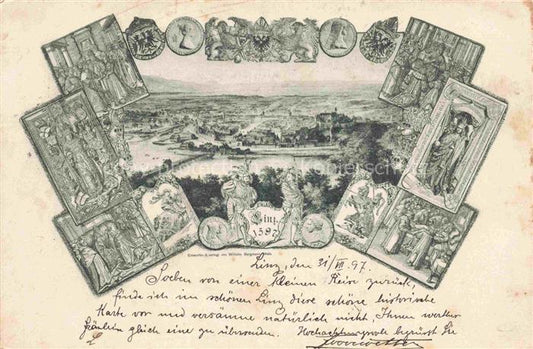 Linz
1597
Linz, den 31/VII 97.
Soeben von einer kleinen Reise zurück,
finde ich im schönen Linz diese schöne historische
Karte vor und versäume natürlich nicht, Ihnen werthes
Fräulein gleich eine zu übersenden. Hochachtungsvoll begrüsst Sie